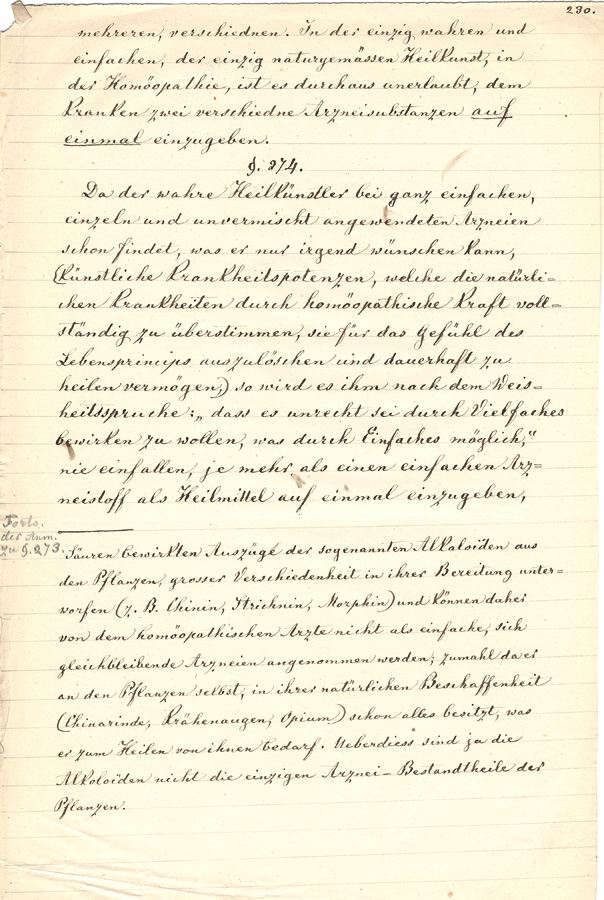 230.
mehreren, verschiednen. In der einzig wahren und
einfachen, der einzig naturgemässen Heilkunst, in
der Homöopathie, ist es durchaus unerlaubt, dem
Kranken zwei verschiedne Arzneisubstanzen auf
einmal einzugeben.
§. 274.
Da der wahre Heilkünstler bei ganz einfachen,
einzeln und unvermischt angewendeten Arzneien
schon findet, was er nur irgend wünschen kann,
(künstliche Krankheitspotenzen, welche die natürli=
chen Krankheiten durch homöopathische Kraft voll=
ständig zu überstimmen, sie für das Gefühl des
Lebensprincips auszulöschen und dauerhaft zu
heilen vermögen,) so wird es ihm nach dem Weis=
heitsspruche: „dass es unrecht sei durch Vielfaches
bewirken zu wollen, was durch Einfaches möglich,“
nie einfallen, je mehr als einen einfachen Arz=
neistoff als Heilmittel auf einmal einzugeben,
Forts.
der Anm.
zu §. 273.
Säuren bewirkten Auszüge der sogenannten Alkaloïden aus
den Pflanzen, grosser Verschiedenheit in ihrer Bereitung unter=
worfen (z. B. Chinin, Strichnin, Morphin) und können daher
von dem homöopathischen Arzte nicht als einfache, sich
gleichbleibende Arzneien angenommen werden, zumahl da er
an den Pflanzen selbst, in ihrer natürlichen Beschaffenheit
(Chinarinde, Krähenaugen, Opium) schon alles besitzt, was
er zum Heilen von ihnen bedarf. Ueberdiess sind ja die
Alkoloïden nicht die einzigen Arznei-Bestandtheile der
Pflanzen.